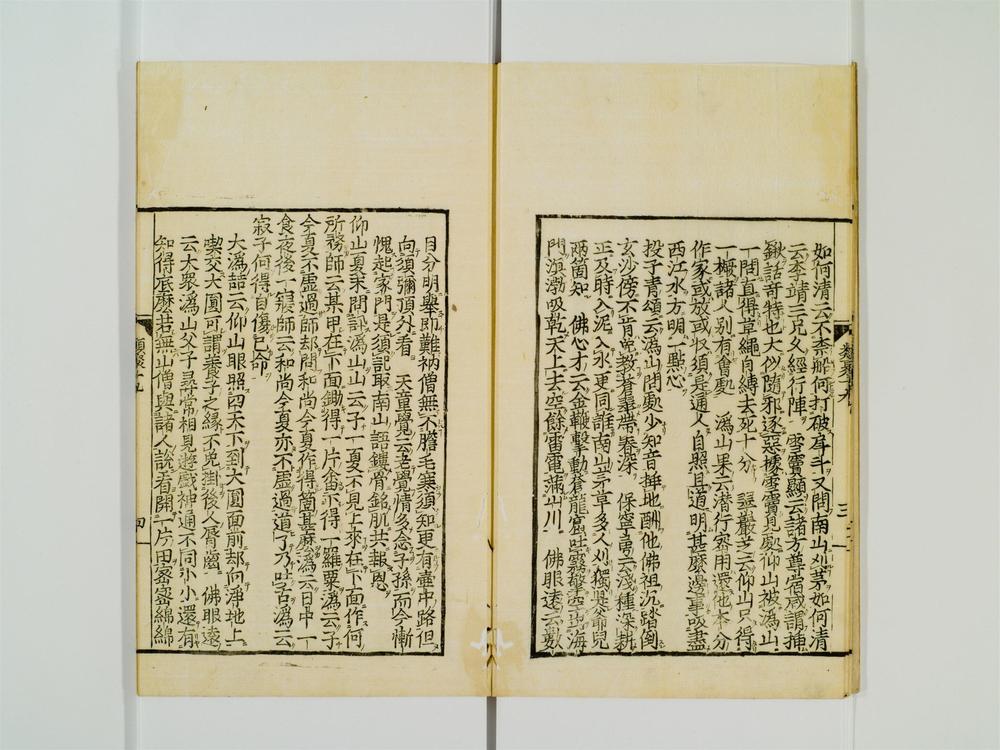 如何清云不柰船何打破戽斗又問南山刈茅如何清
云李靖三兄久經行陣 雪竇顯云諸方尊宿咸謂插
鍬話奇特也大似隨邪逐惡據雪竇見處仰山被溈山
一問直得草繩自縛去死十分
一橛諸人別有會處 溈山果云潛行密用還他本分
作家或放或收須是通人自照且道明甚麼邊事吸盡
西江水方明一點心
投子青頌云溈山問處少知音插地酬他佛祖沉踏倒
玄沙傍不肯免教蒼翠帶春深 保寧勇云淺種深耕
正及時入泥入水更同誰南山茅草多人刈獨與爺兒
兩箇知 佛心才云金鞭擊動蒼龍窟
門浪渤吸乾天上去空餘雷電滿山川 佛眼遠云數
目分明舉即難衲僧無不膽毛寒須知更有壺中路但
向須彌頂外看 天童覺云老覺情多念子孫而今慚
愧起家門是須記取南山語鏤骨銘肌共報恩
仰山夏末問訊溈山山云子一夏不見上來在下面作何
所務師云某甲在下面鋤得一片畬下得一籮粟溈云子
今夏不虛過師却問和尚今夏作得箇甚麼溈云日中一
食夜後一寢師云和尚今夏亦不虛過道了乃吐舌溈云
寂子何得自傷己命
大溈喆云仰山眼照四天下到大圓面前却向淨地上
喫交大圓可謂養子之緣不免掛後人脣齒 佛眼遠
云大衆溈山父子尋常相見遊戲神通不同小小還有
知得底麼若無山僧與諸人說看開一片田密密綿綿